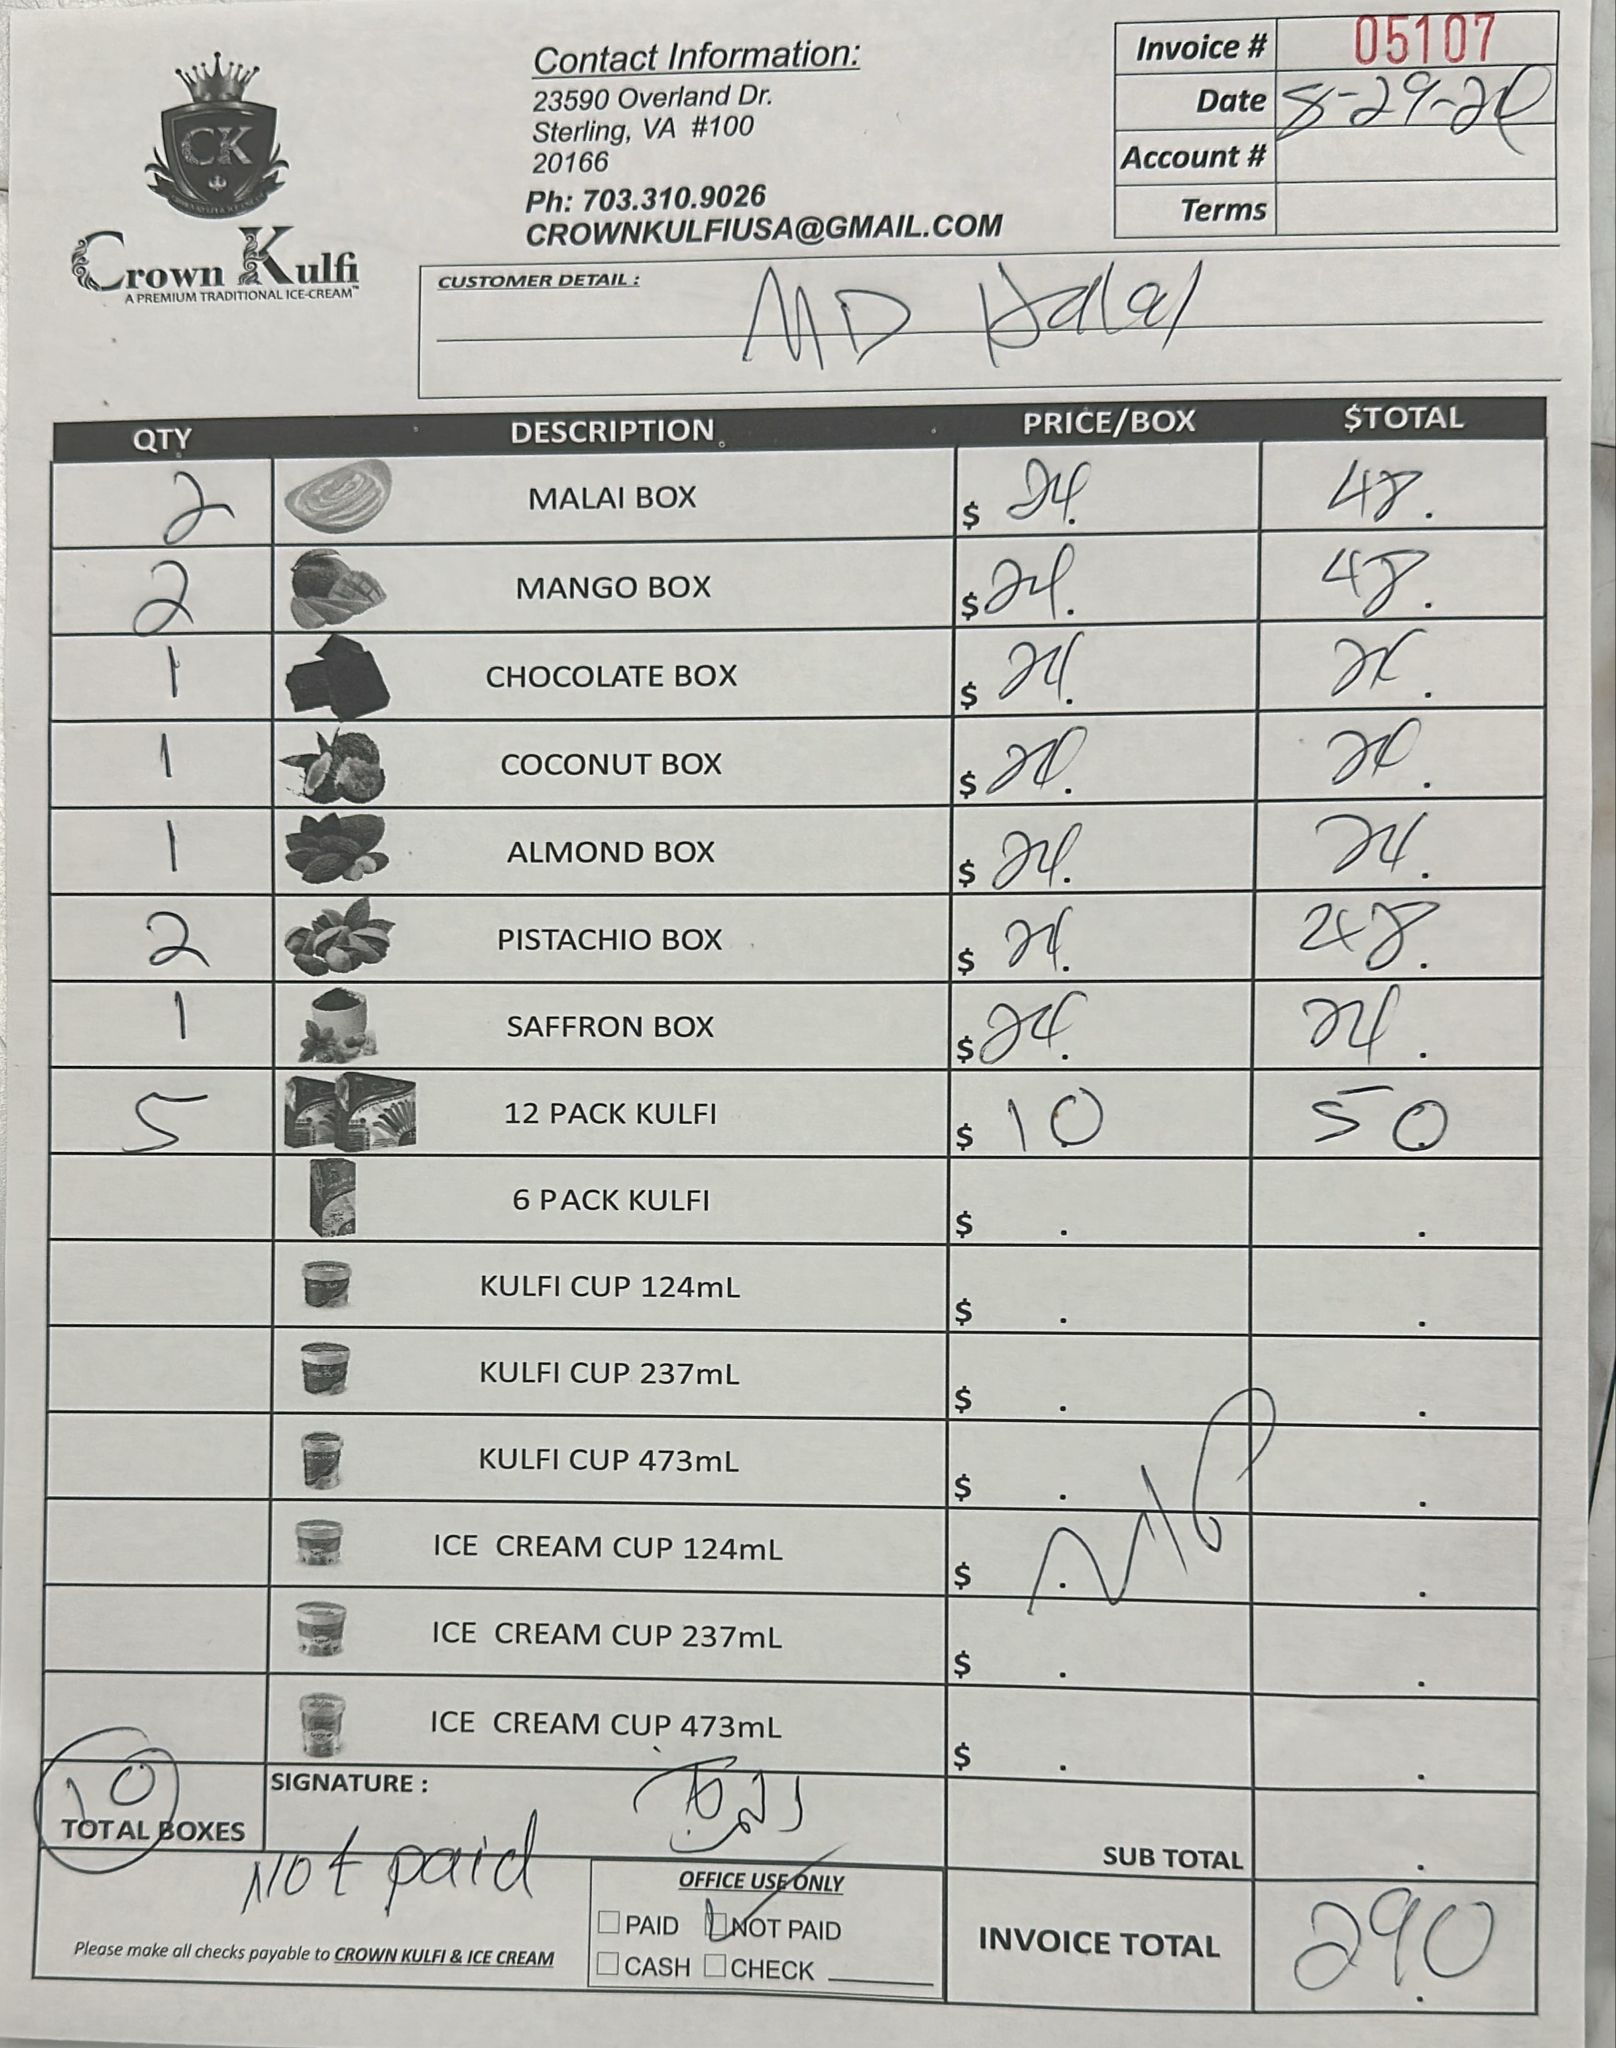 CK
Crown Kulfi
A PREMIUM TRADITIONAL ICE-CREAM™
Contact Information:
23590 Overland Dr.
Sterling, VA #100
20166
Ph: 703.310.9026
CROWNKULFIUSA@GMAIL.COM
Invoice # 05107
Date 8-29-24
Account #
Terms
CUSTOMER DETAIL :
MD Halal
QTY DESCRIPTION PRICE/BOX $TOTAL
2 MALAI BOX $ 24. 48.
2 MANGO BOX $ 24. 48.
1 CHOCOLATE BOX $ 24. 24.
1 COCONUT BOX $ 24. 24.
1 ALMOND BOX $ 24. 24.
2 PISTACHIO BOX $ 24. 48.
1 SAFFRON BOX $ 24. 24.
5 12 PACK KULFI $ 10 50
6 PACK KULFI $ . .
KULFI CUP 124mL $ . .
KULFI CUP 237mL $ . .
KULFI CUP 473mL $ . .
ICE CREAM CUP 124mL $ . .
ICE CREAM CUP 237mL $ . .
ICE CREAM CUP 473mL $ . .
10
TOTAL BOXES
SIGNATURE :
SUB TOTAL .
Not paid
OFFICE USE ONLY
PAID NOT PAID
CASH CHECK
Please make all checks payable to CROWN KULFI & ICE CREAM
INVOICE TOTAL 290.